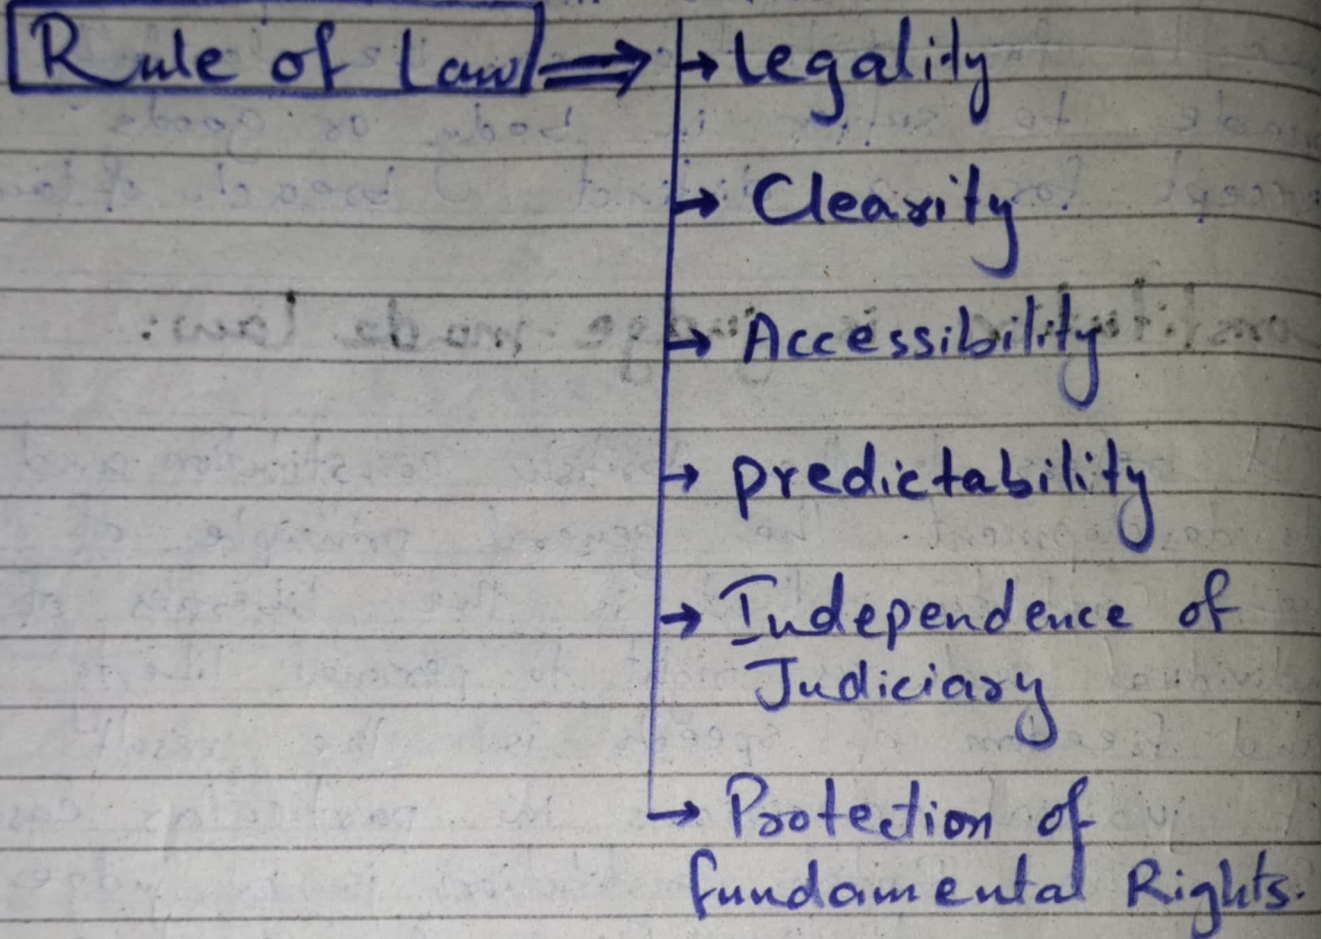 Rule of Law ⇒ → legality
→ Clearity
→ Accessibility
→ predictability
→ Independence of
Judiciary
→ Protection of
fundamental Rights.